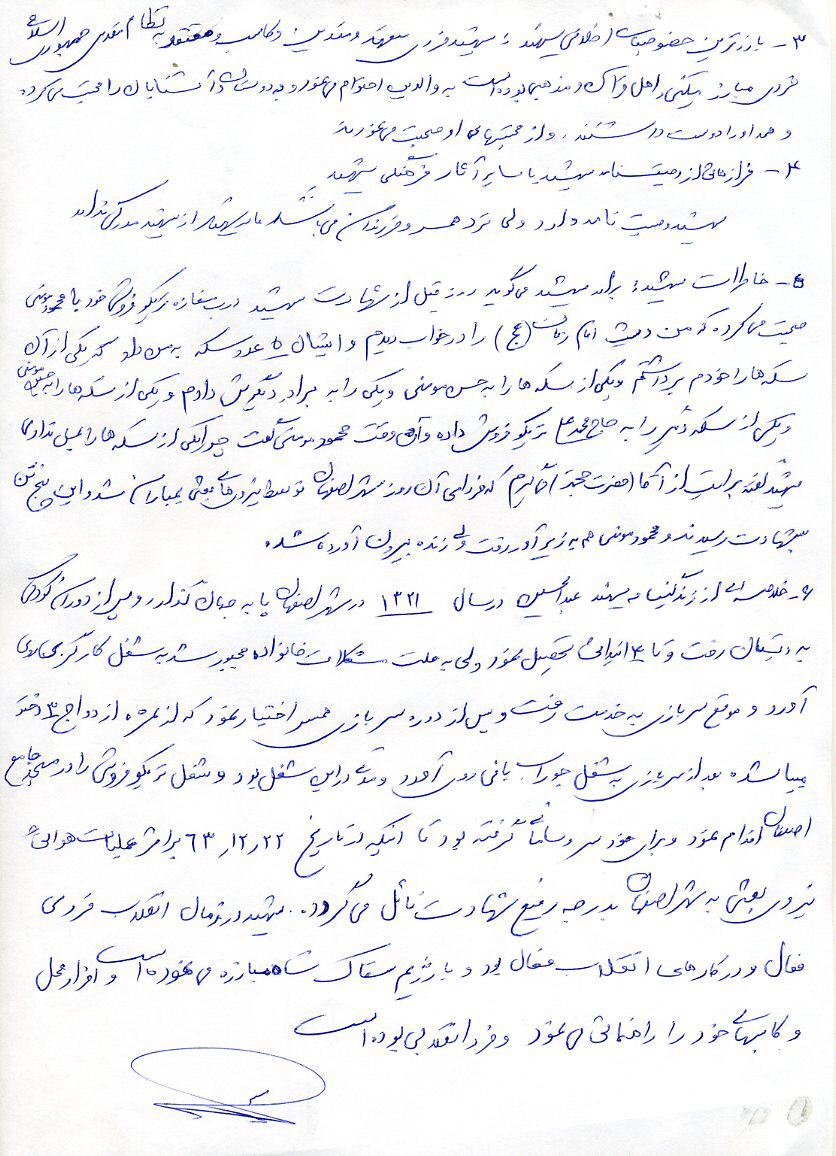 ۳- بارزترین خصوصیات اخلاقی شهید : شهید فردی متعهد و متدین و کاسب و معتقد به نظام مقدس جمهوری اسلامی
فردی مبارز اهل و مذهبی بوده است به والدین احترام می نمود و به دوستان و آشنایان را محبت می کرده
و همه او را دوست داشتند . و از محبتهای او صحبت می نمودند
۴- فرازهائی از وصیتنامه شهید یا سایر آثار فرهنگی شهید
شهید وصیت نامه دارد ولی نزد همسر و فرزندان می باشد از شهید مدرکی ندارند
۵- خاطرات شهید : برادر شهید می گوید روز قبل از شهادت شهید درب مغازه تریکو فروشی خود با محمود مومنی
صحبت می کرده که من دیشب امام زمان (عج) را در خواب دیدم و ایشان ۵ عدد سکه به من داد که یکی از آن
سکه ها را خودم برداشتم و یکی از سکه ها را به حسن مومنی و یکی را به برادر دیگرش دادم و یکی از سکه ها را به
و یکی از سکه را به حاج محمد علی تریکو فروش داده و آن وقت محمود مومنی گفت چرا یکی از سکه ها را بمن ندادی
شهید گفته برایت از آقا (حضرت حجت) می گیرم که فردای آن روز شهر اصفهان توسط نیروهای بعثی بمباران شد و این پنج تن
به شهادت رسیدند و محمود مومنی هم به زیر آوار رفت ولی زنده بیرون آورده شد
۶- خلاصه ای از زندگینامه شهید عبدالحسین در سال ۱۳۲۱ در شهر اصفهان پا به جهان گذارد و پس از دوران کودکی
به دبستان رفت و تا ۴ ابتدائی تحصیل نمود ولی به علت مشکلات خانواده مجبور شد به شغل کارگری روی
آورد و موقع سربازی به خدمت رفت و پس از دوره سربازی همسر اختیار نمود که ثمره ازدواج ۳ دختر
میباشد بعد از سربازی به شغل جوراب بافی روی آورد و مدتی در این شغل بود و شغل تریکو فروشی را در مسجد جامع
اصفهان اقدام نمود و برای خود سر و سامانی گرفته بود تا اینکه در تاریخ ۶۳,۱۲,۲۲ بر اثر عملیات هوایی
نیروی بعثی به شهر اصفهان بدرجه رفیع شهادت نائل می گردد. شهید در زمان انقلاب فردی
فعال و در کارهای انقلاب فعال بود و با رژیم سفاک شاه مبارزه می نموده است و افراد محل
و کاسبهای خود را راهنمائی می نمود و فرد انقلابی بوده است